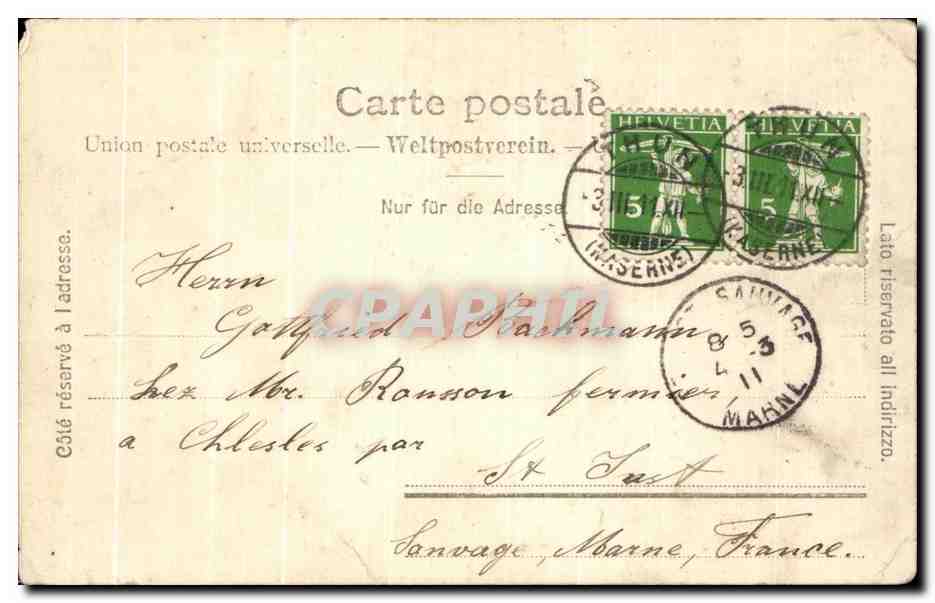 Carte postale
Union postale universelle. — Weltpostverein. — U
Nur für die Adresse
Côté réservé à l'adresse.
Lato riservato all indirizzo.
HELVETIA
5
HELVETIA
5
THUN
-3.III.11.XII-
(KASERNE)
THUN
-3.III.11.XII-
(KASERNE)
SAUVAGE
8 5
4 -3
11
MARNE
CPAPHIL
Herrn
Gottfried Bachmann
chez Mr. Rousson fermier,
a Chlesles par
St Just
Sauvage, Marne, France.